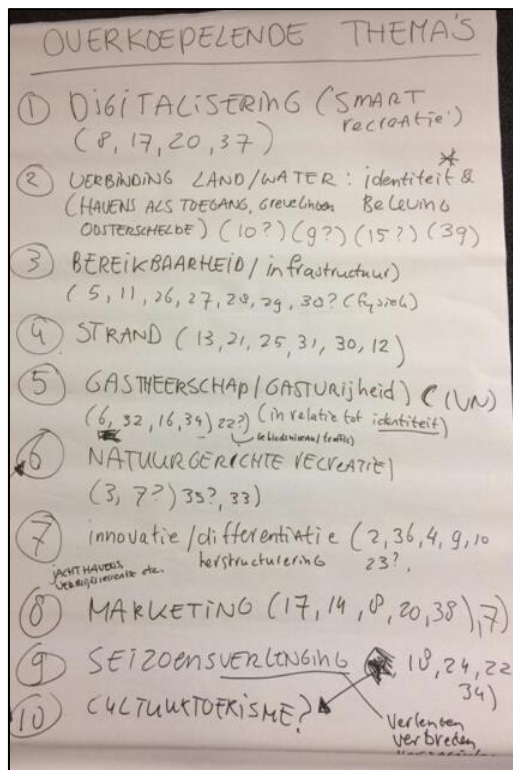 OVERKOEPELENDE THEMA'S
1 DIGITALISERING ('SMART
recreatie')
(8, 17, 20, 37)
2 VERBINDING LAND/WATER: identiteit &
(HAVENS ALS TOEGANG, Grevelingen Beleving
OOSTERSCHELDE) (10?) (9?) (15?) (39)
3 BEREIKBAARHEID/infrastructuur)
(5, 11, 26, 27, 28, 29, 30? (fysiek)
4 STRAND (13, 21, 25, 31, 30, 12)
5 GASTHEERSCHAP/GASTVRIJHEID) (VN)
(6, 32, 16, 34) 22?) (in relatie tot identiteit)
6 NATUURGERICHTE RECREATIE)
(3, 7?) 35?, 33)
7 innovatie/differentiatie (2, 36, 4, 9, 10
herstructurering 23?,
JACHTHAVENS,
etc.
8 MARKETING (17, 14, 8, 20, 38), 7)
9 SEIZOENSVERLENGING 18, 24, 22
34)
10 CULTUURTOERISME?
Verlengen
verbreden